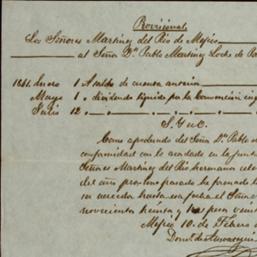 Provisional
Los Señores Martinez del Rio de Mejico
al Señor Dn. Pablo Martinez
1861. Enero 1 A saldo de cuenta anterior
Mayo 1 " dividendo líquido por la
Julio 12 "
S. Y. u O.
Como apoderado del Señor Dn. Pablo
conformidad con lo acordado en la junta
Señores Martinez del Rio hermanos
del año proximo pasado he formado
su acreedor hasta esa fecha el Señor
novecientos treinta y tres pesos
Mejico 10 de Febrero